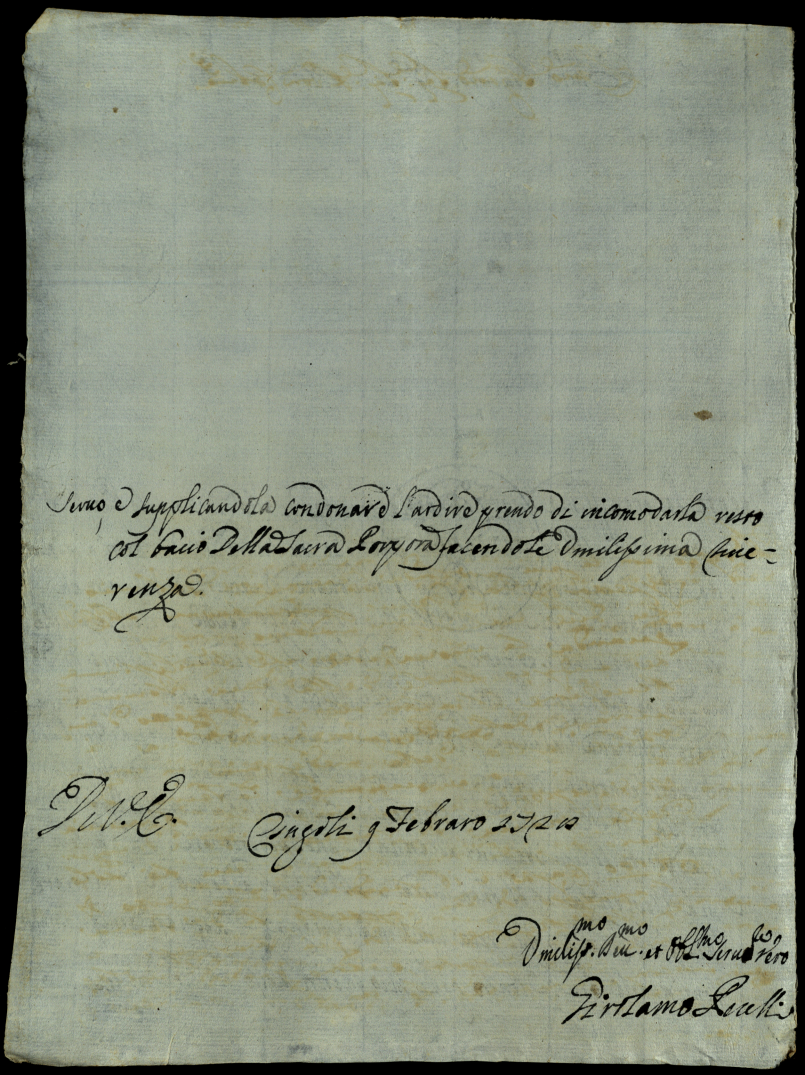 seruo, e supplicandola condonare l'ardire prendo di incomodarla resto
col bacio Della Sacra Porpora facendole Vmilissima riue=
renza.
Di V. E.
Cingoli 9 Febraro 1720
Vmiliss.mo Deu.mo et Obl.mo Seru.re vero
Girolamo